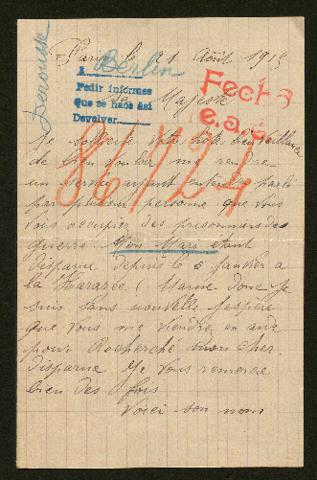 Paris le 21 Août 1915
Derousse
Berlin
A
Pedir informes
Que se haga así
Devolver
Fecha
Sa Majesté
86/1124
Je sollicite votre haute bienveillance
de bien vouloir me rendre
un service ayant entendu parlé
par plusieur personne que vous
vous occupier des prisonniers de
guerre. Mon Mari étant
disparue depuis le 6 janvier a
la Hararée (Marne Donc je
suis sans nouvelle jespère
que vous me viendrez en aide
pour Recherché mon cher
disparue Je vous remercie
bien des fois
Voici son nom